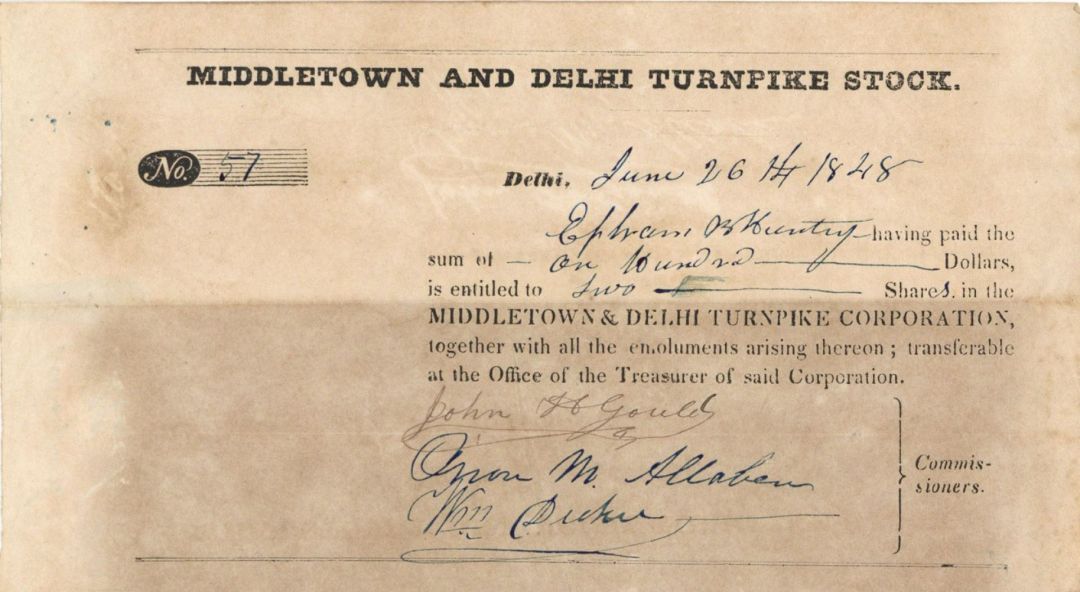 MIDDLETOWN AND DELHI TURNPIKE STOCK.
No. 57
Delhi, June 26th 1848
Ephram B Huntly having paid the
sum of — on Hundrd — Dollars,
is entitled to two — Shares. in the
MIDDLETOWN & DELHI TURNPIKE CORPORATION,
together with all the emoluments arising thereon; transferable
at the Office of the Treasurer of said Corporation.
John H Gould
Orson M. Allaben
Wm
Commis-
sioners.